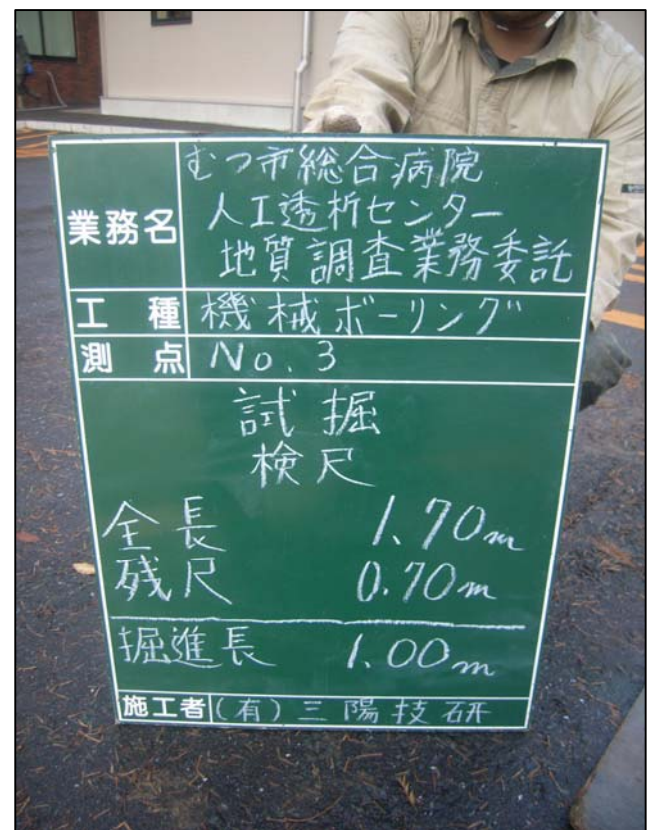 業務名 むつ市総合病院
人工透析センター
地質調査業務委託
工種 機械ボーリング
測点 No.3
試掘
検尺
全長 1.70m
残尺 0.70m
掘進長 1.00m
施工者 (有)三陽技研